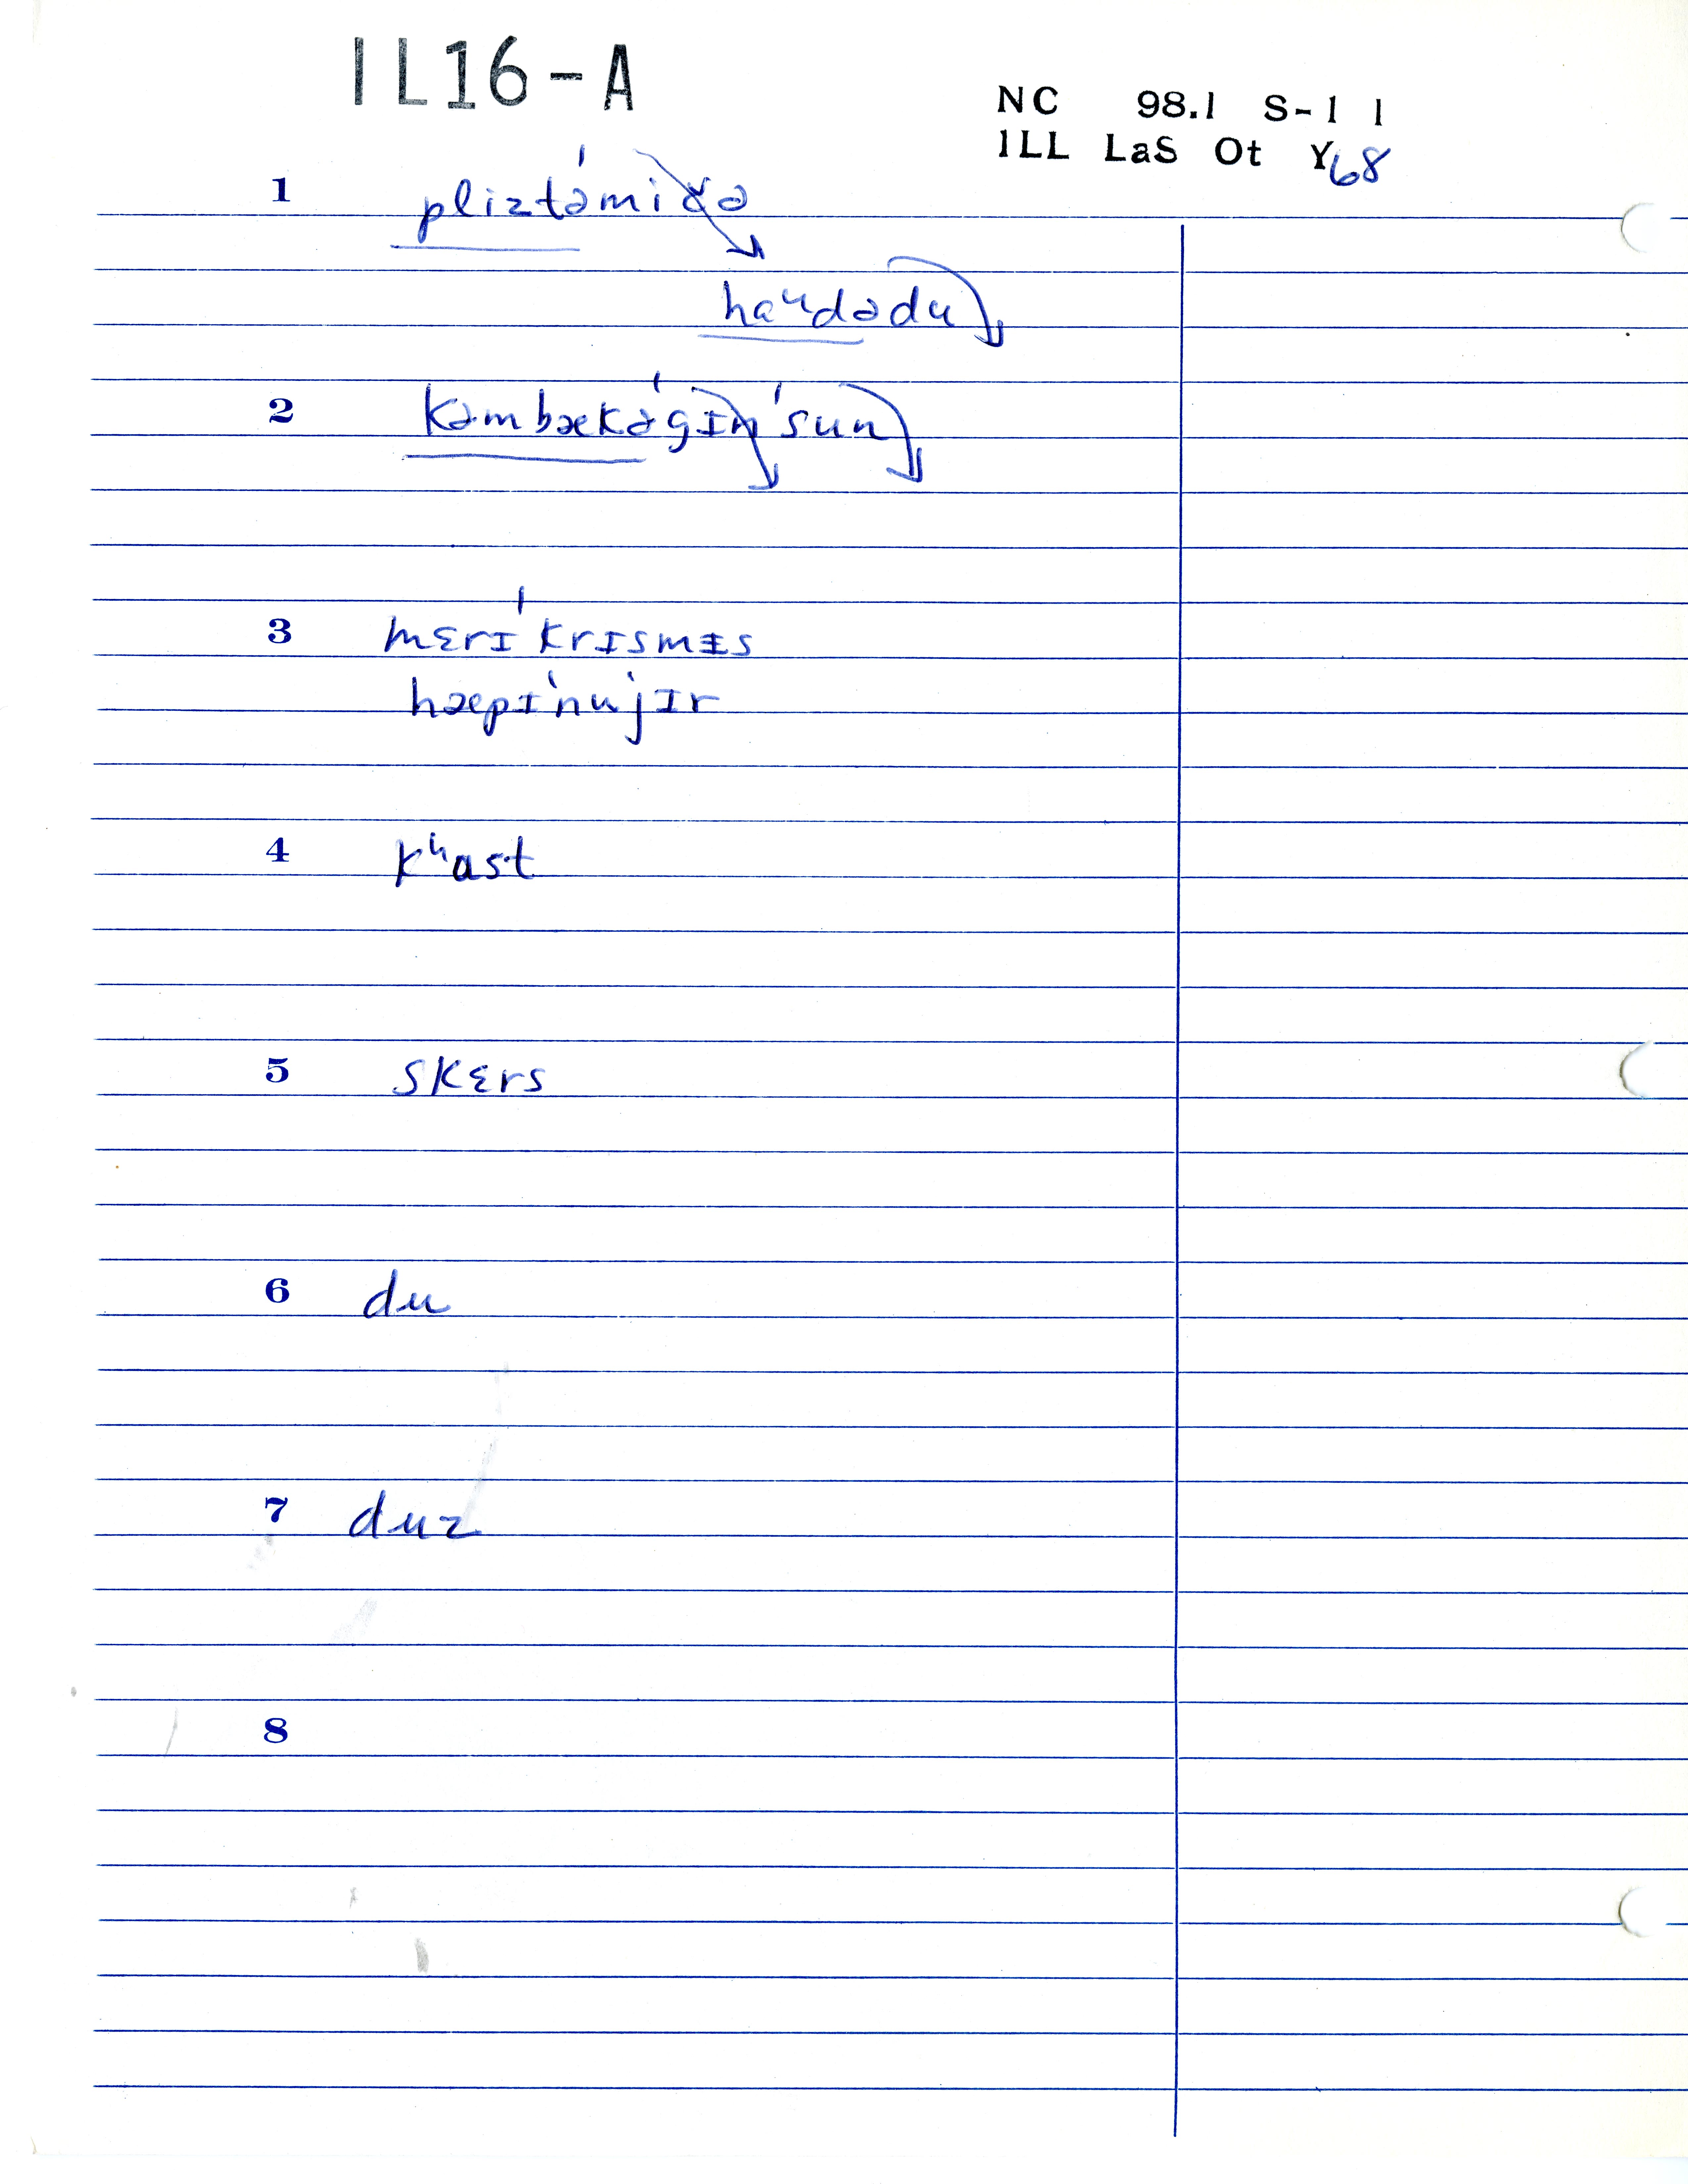 IL16-A
NC 98.1 S-1 1
ILL LaS Ot Y68
1 pliztəˈmiɕə
haᵘdədu
2 kəmbækəˈgɪnˈsun
3 mɛrɪˈkrɪsmɪs
hæpɪˈnujɪr
4 kʰast
5 skɛrs
6 du
7 duz
8